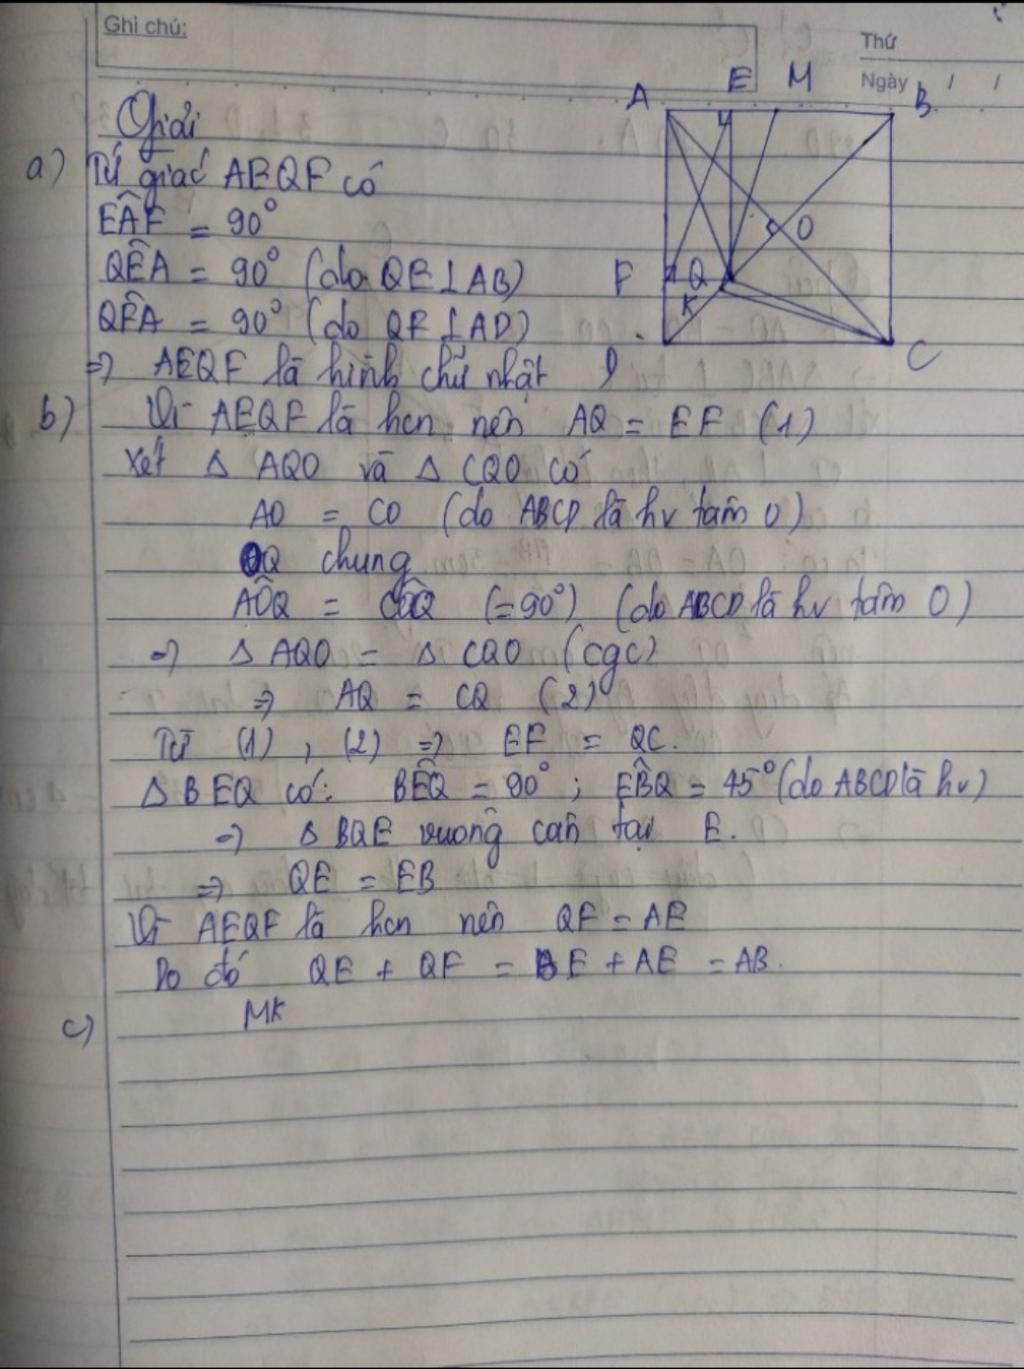 Ghi chú:
Thứ
Ngày / /
A E M B
Giải
a) Tứ giác AEQF có
EÂF = 90°
QÊA = 90° (do QE⊥AB)
F Q O
K
QF̂A = 90° (do QF⊥AD)
=> AEQF là hình chữ nhật
D C
b) Vì AEQF là hcn nên AQ = EF (1)
Xét △ AQO và △ CQO có
AO = CO (do ABCD là hv tâm O)
OQ chung
AÔQ = CÔQ (=90°) (do ABCD là hv tâm O)
=> △ AQO = △ CQO (cgc)
=> AQ = CQ (2)
Từ (1), (2) => EF = QC.
△ BEQ có: BÊQ = 90°; EB̂Q = 45° (do ABCD là hv)
=> △ BQE vuông cân tại E.
=> QE = EB
Vì AEQF là hcn nên QF = AE
Do đó QE + QF = BE + AE = AB.
c) MK